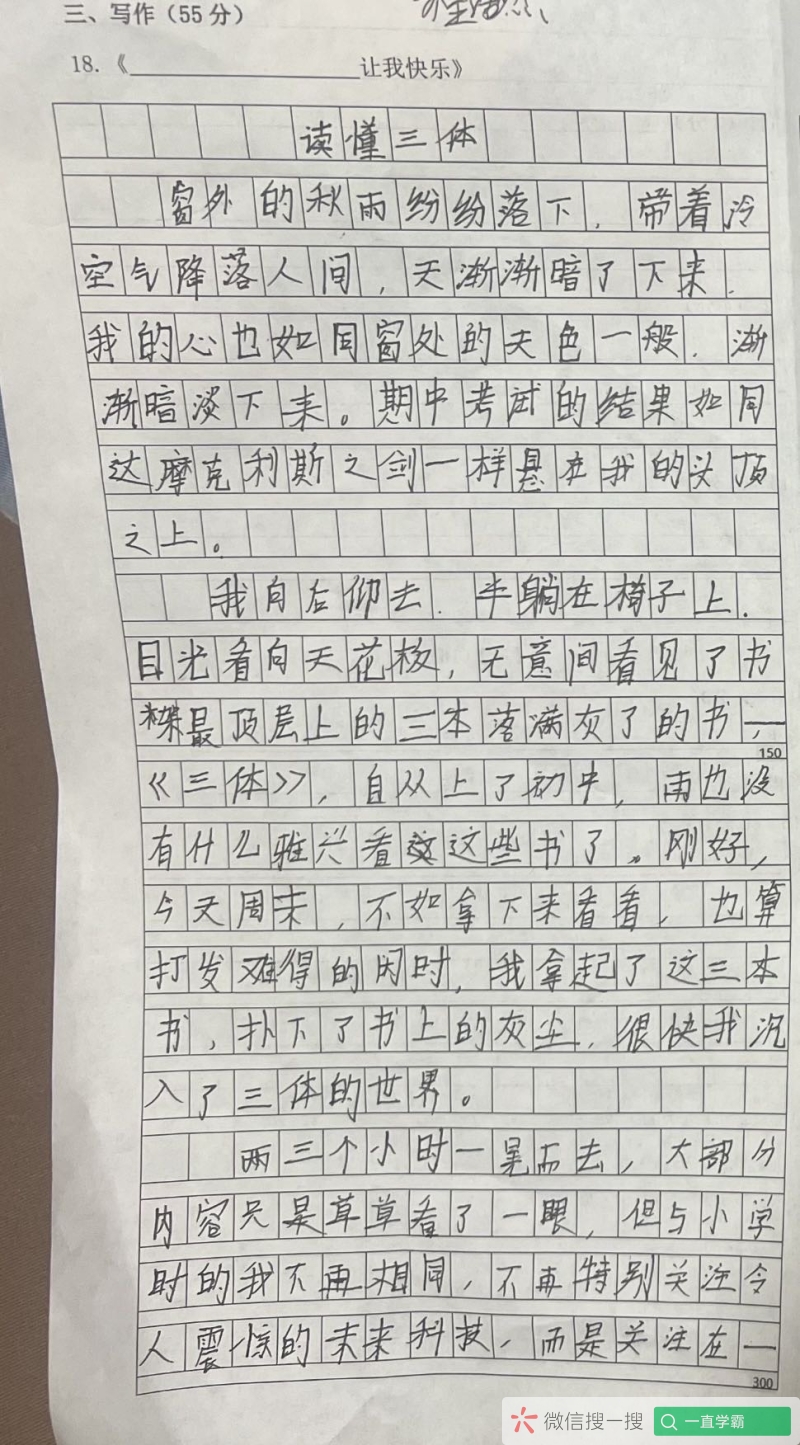 三、写作（55分）
18.《________________让我快乐》
读懂三体
窗外的秋雨纷纷落下，带着冷
空气降落人间，天渐渐暗了下来.
我的心也如同窗处的天色一般.渐
渐暗淡下来。期中考试的结果如同
达摩克利斯之剑一样悬在我的头顶
之上。
我向后仰去.半躺在椅子上.
目光看向天花板，无意间看见了书
架最顶层上的三本落满灰了的书，一
150
《三体》，自从上了初中，再也没
有什么雅兴看这些书了。刚好，
今天周末，不如拿下来看看，也算
打发难得的闲时，我拿起了这三本
书，扑下了书上的灰尘，很快我沉
入了三体的世界。
两三个小时一晃而去，大部分
内容只是草草看了一眼，但与小学
时的我不再相同，不再特别关注令
人震惊的未来科技，而是关注在一
300
微信搜一搜
一直学霸